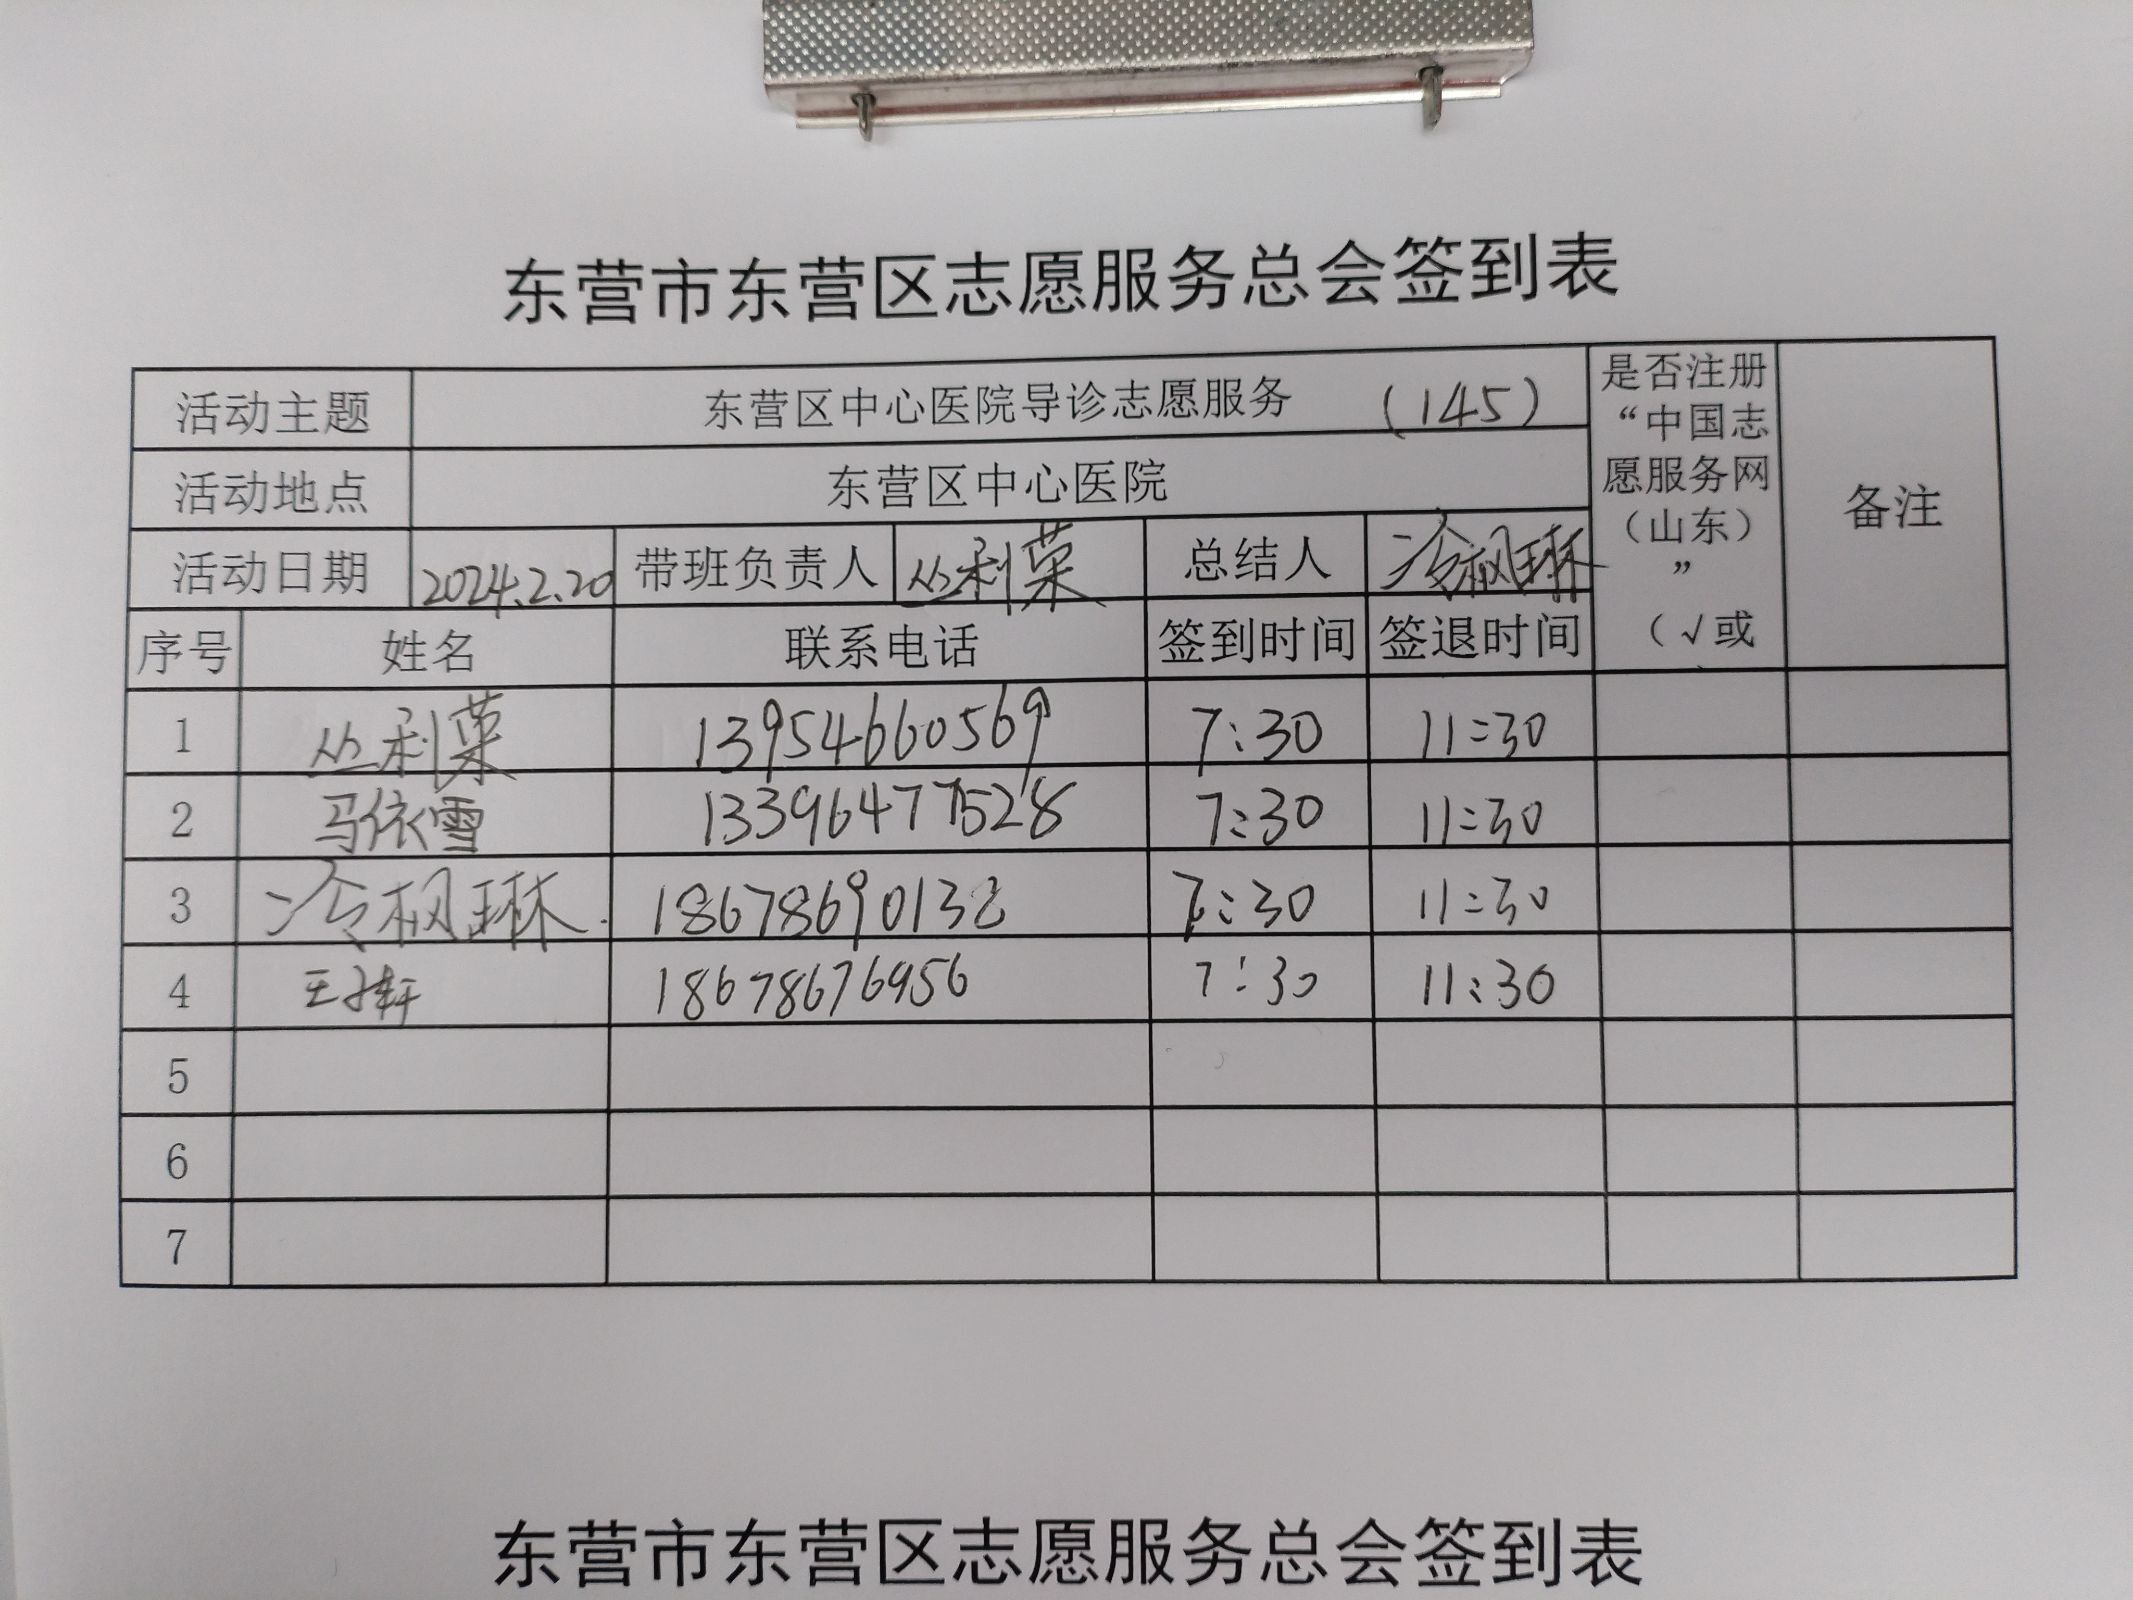 东营市东营区志愿服务总会签到表
活动主题 东营区中心医院导诊志愿服务 (145) 是否注册“中国志愿服务网（山东）”（√或 备注
活动地点 东营区中心医院
活动日期 2024.2.20 带班负责人 丛利荣 总结人 冷枫琳
序号 姓名 联系电话 签到时间 签退时间
1 丛利荣 13954660569 7:30 11:30
2 马依雪 13396477528 7:30 11:30
3 冷枫琳 18678690132 7:30 11:30
4 王轩 18678676956 7:30 11:30
5
6
7
东营市东营区志愿服务总会签到表